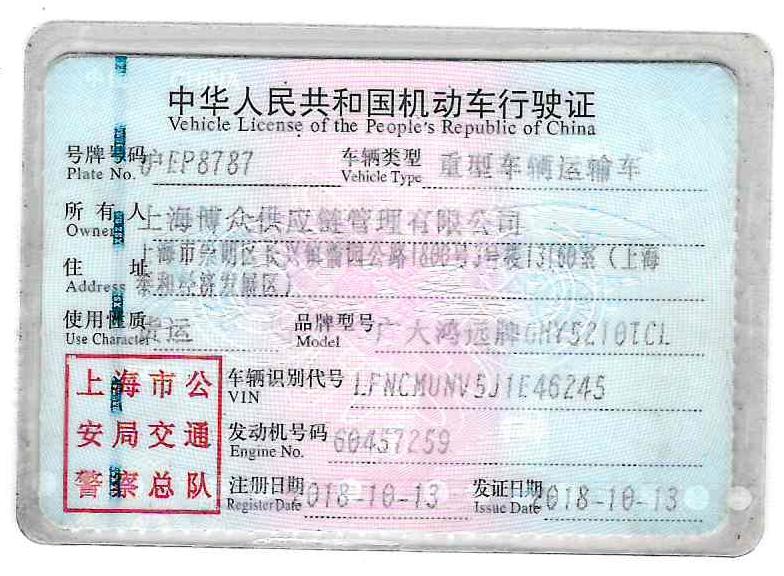 中华人民共和国机动车行驶证
Vehicle License of the People's Republic of China
号牌号码 沪EP8787 车辆类型 重型车辆运输车
Plate No. Vehicle Type
所有人 上海博众供应链管理有限公司
Owner
上海市崇明区长兴镇潘园公路1800号3号楼13160室（上海
住址 泰和经济发展区）
Address
使用性质 货运 品牌型号 广大鸿远牌GHY5210TCL
Use Character Model
上海市公 车辆识别代号 LFNCMUNV5J1E46245
VIN
安局交通 发动机号码 60457259
Engine No.
警察总队 注册日期 2018-10-13 发证日期 2018-10-13
Register Date Issue Date